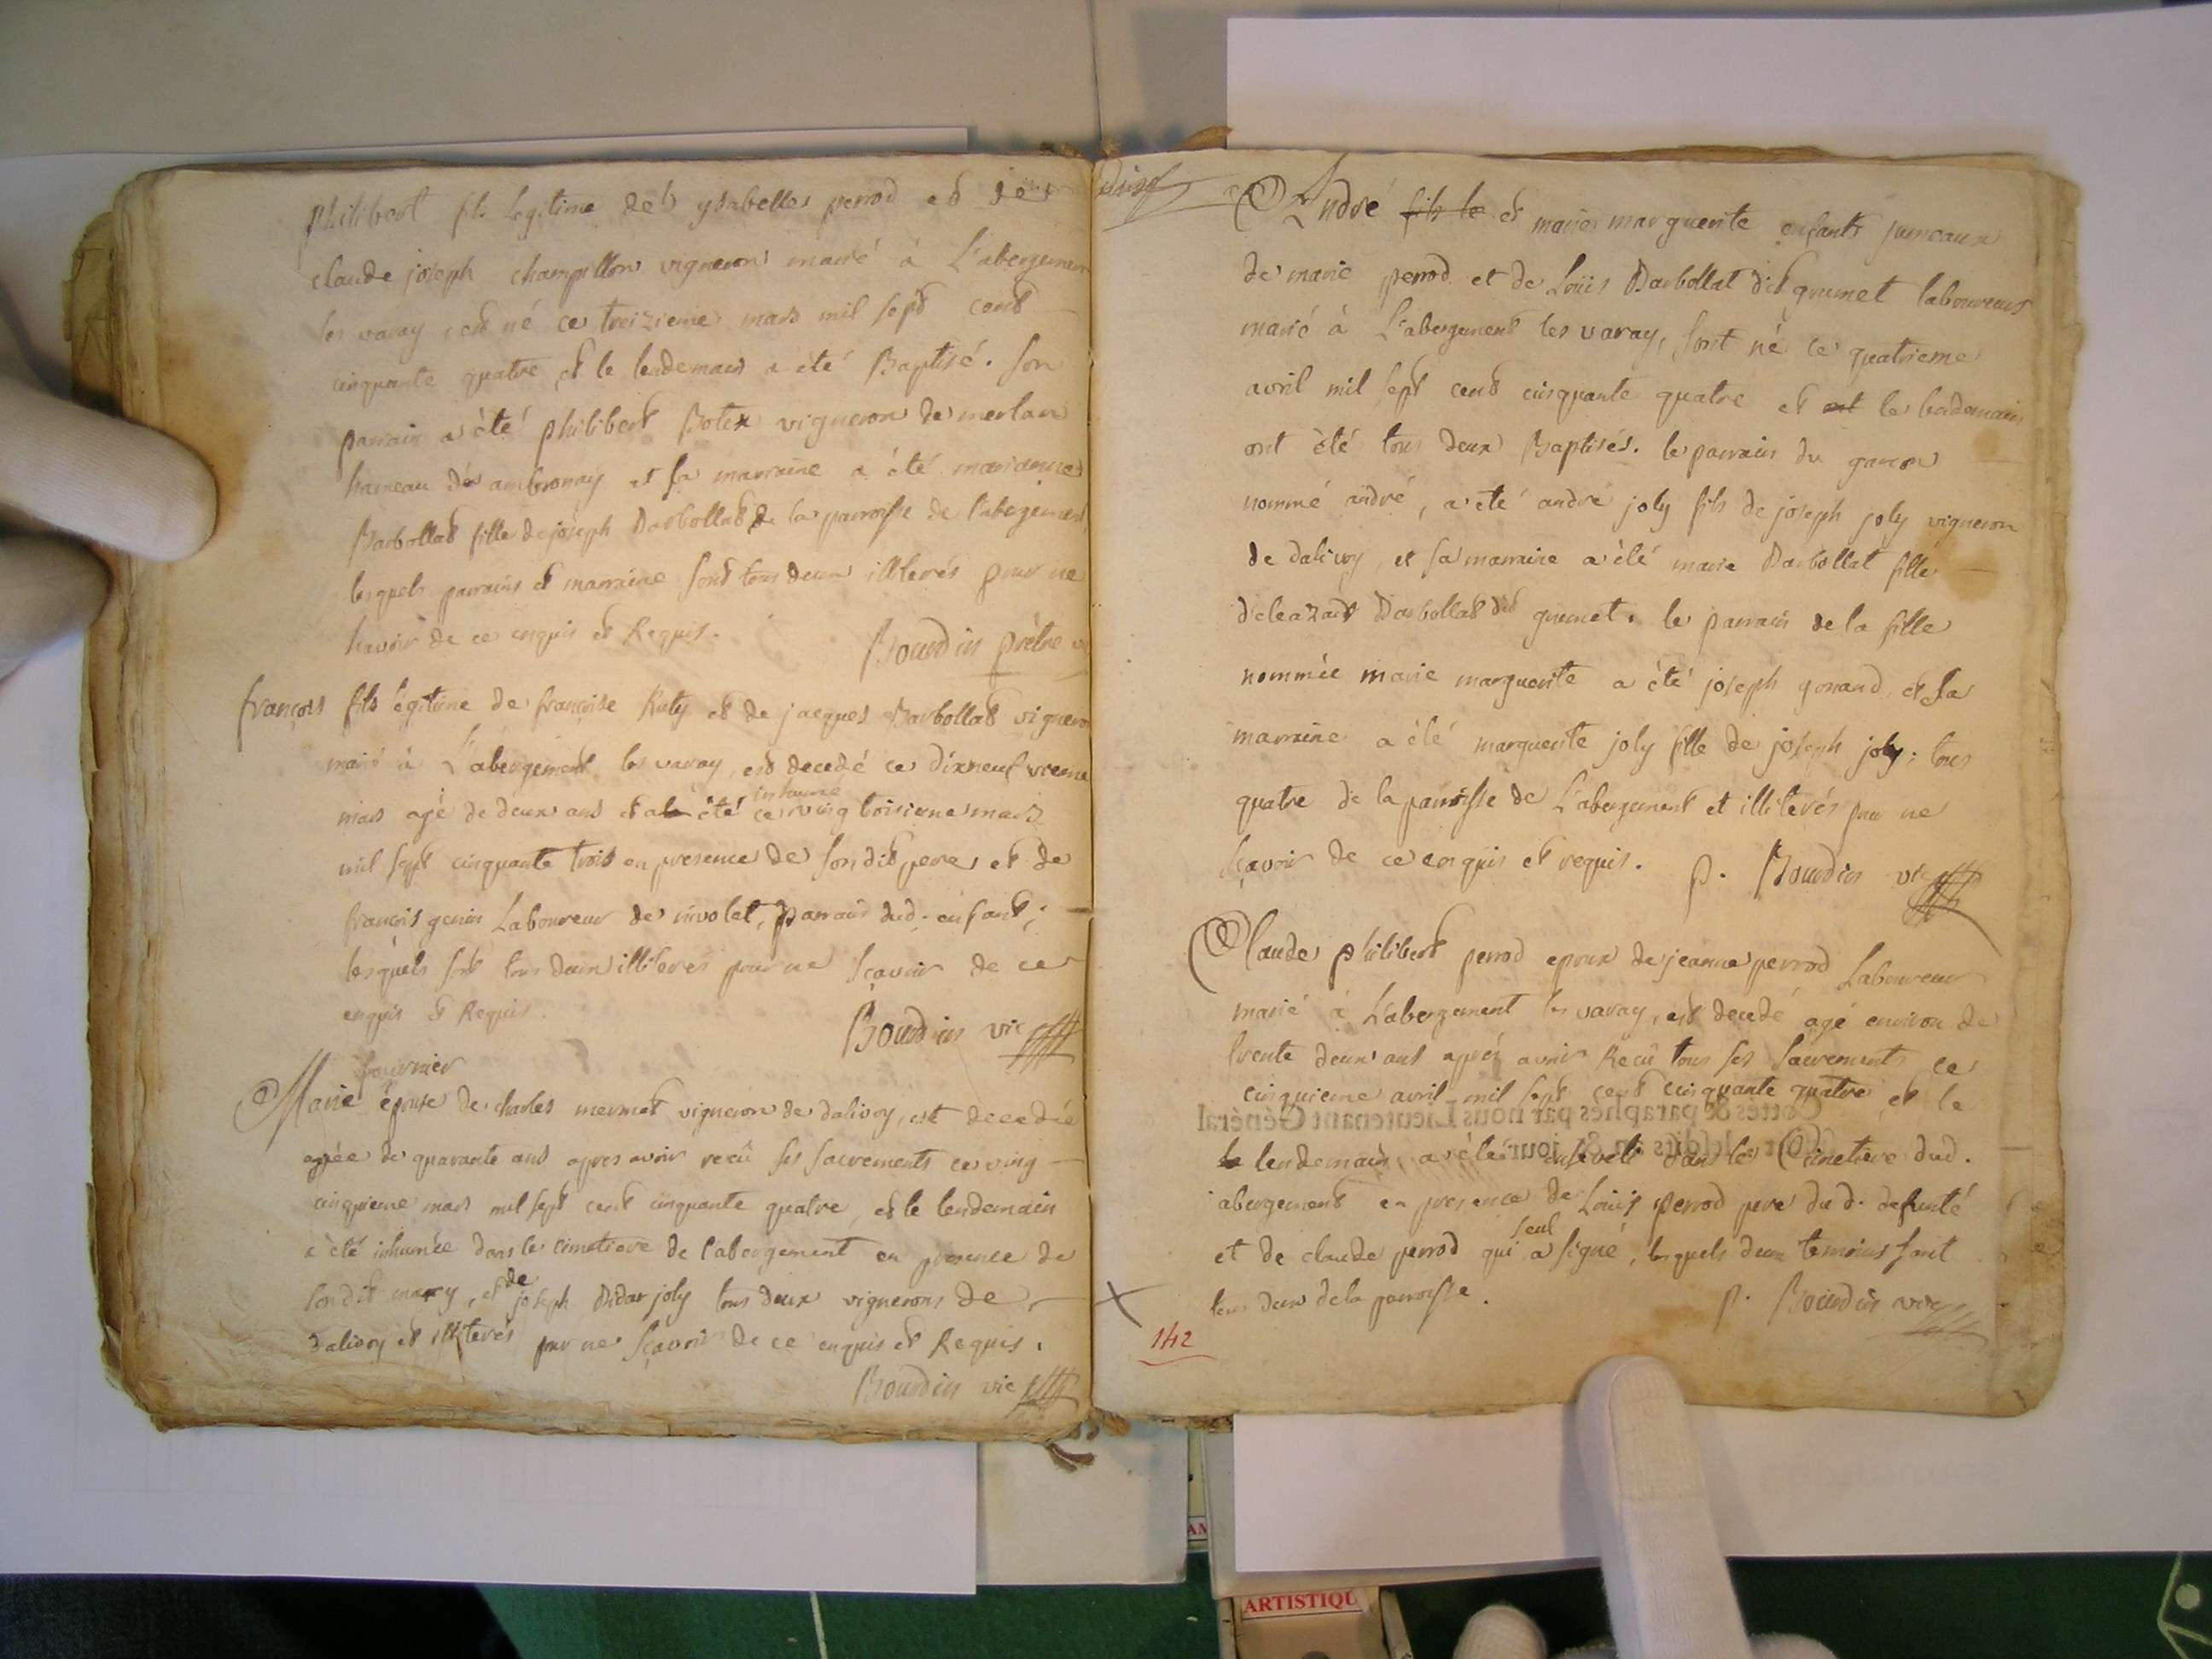 philibert fils legitime de ysabelle perrod et de
claude joseph champillon vigneron marié à L'abergement
les varay, est né ce treizieme mars mil sept cent
cinquante quatre, et le lendemain a été Baptisé. son
parrain a été philibert Botex vigneron de merlan
hameau de ambronay et sa marraine a été marianne
Barbollat fille de joseph Barbollat de la parroisse de l'abergement
lesquels parrains et marraine sont tous deux illiterés pour ne
sçavoir de ce enquis et Requis.
Bourdin prêtre
françois fils légitime de françoise Ruty et de jacques Barbollat vigneron
marié à L'abergement les varay, est decedé ce dixneufvieme
mars agé de deux ans et a été inhumé ce ving troisieme mars
mil sept cinquante trois en presence de sondit pere et de
françois genin Laboureur de nivolet, parrain dud. enfant;
lesquels sont tous deux illiterés pour ne sçavoir de ce
enquis et Requis.
Bourdin vic
fournier
Marie épouse de charles mermet vigneron de dalivoy, est decedée
agée de quarante ans apres avoir reçû ses sacrements ce ving
cinquieme mars mil sept cent cinquante quatre, et le lendemain
a été inhumée dans le cimetiere de l'abergement en presence de
sondit mary, et de joseph Didar joly tous deux vignerons de
dalivoy et illiterés pour ne sçavoir de ce enquis et Requis.
Bourdin vic
André fils le et marie marguerite enfants jumeaux
de marie perrod et de Loüis Barbollat dit grumet laboureur
marié à L'abergement les varay, sont né ce quatrieme
avril mil sept cent cinquante quatre et ont le lendemain
ont été tous deux Baptisés. le parrain du garcon
nommé andré, a été andré joly fils de joseph joly vigneron
de dalivoy, et sa marraine a été marie Barbollat fille
d'eleazard Barbollat dit grumet. le parrain de la fille
nommée marie marguerite a été joseph gonand, et sa
marraine a été marguerite joly fille de joseph joly; tous
quatre de la parroisse de L'abergement et illiterés pour ne
sçavoir de ce enquis et requis. p. Bourdin vic
Claude philibert perrod epoux de jeanne perrod Laboureur
marié à L'abergement les varay, est decedé agé environ de
trente deux ans après avoir Reçû tous ses sacrements ce
cinquieme avril mil sept cent cinquante quatre et le
Cottés & paraphés par nous Lieutenant Général
le lendemain, a été enseveli dans le Cimetiere dud.
abergement en presence de Louis perrod pere du d. defunté
et de claude perrod qui seul a signé, lesquels deux temoins sont
tous deux de la parroisse.
p. Bourdin vic
142
ARTISTIQU